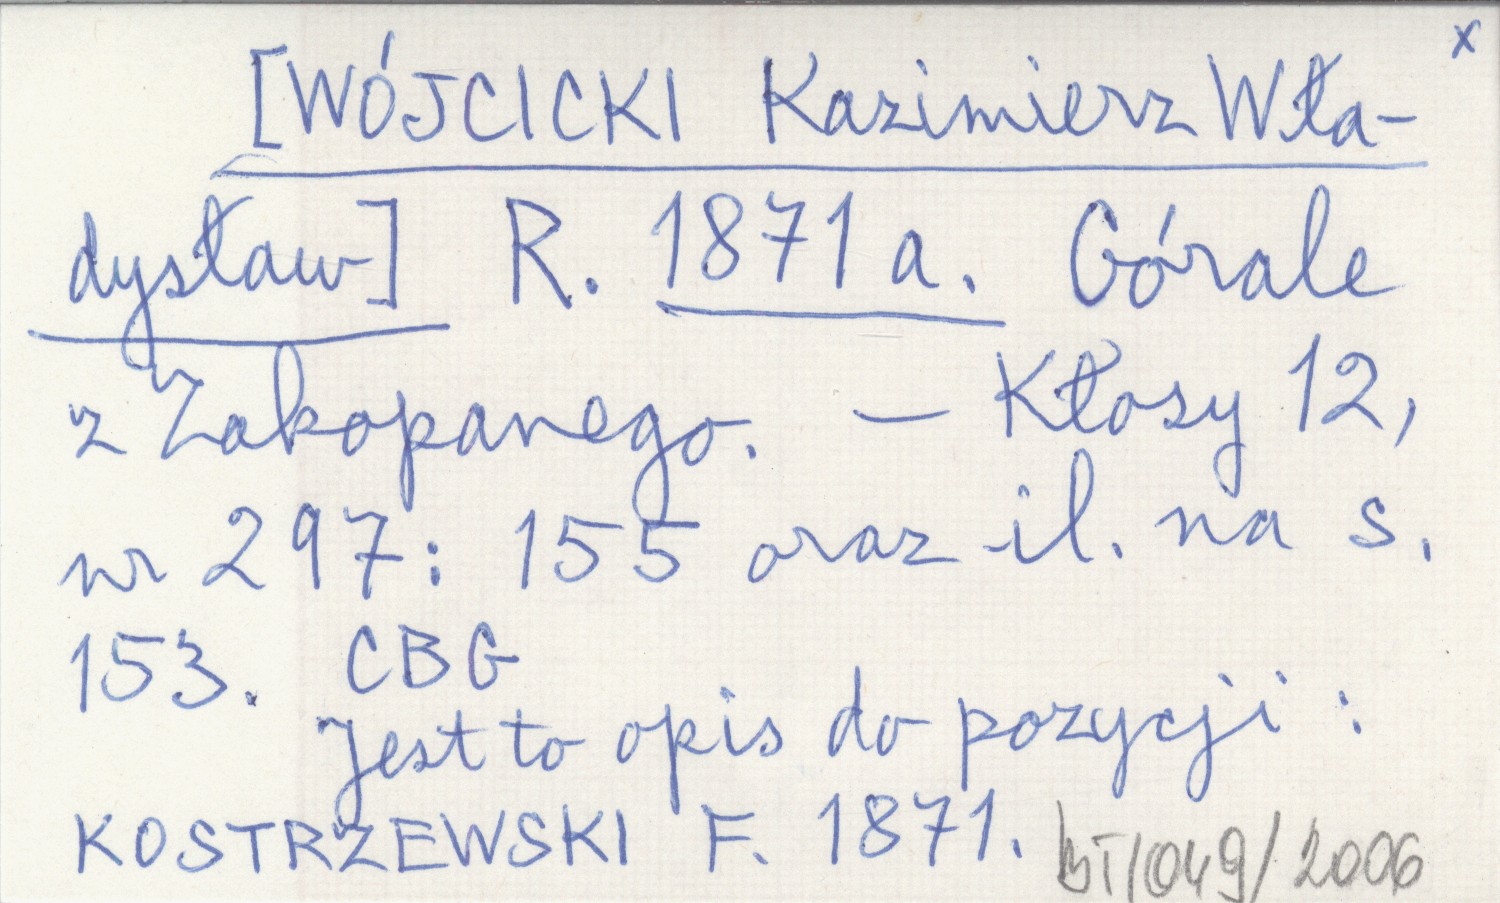 x
[WÓJCICKI Kazimierz Wła-
dysław] R. 1871 a. Górale
z Zakopanego. — Kłosy 12,
nr 297: 155 oraz il. na s.
153. CBG
Jest to opis do pozycji:
KOSTRZEWSKI F. 1871.
BT/049/2006